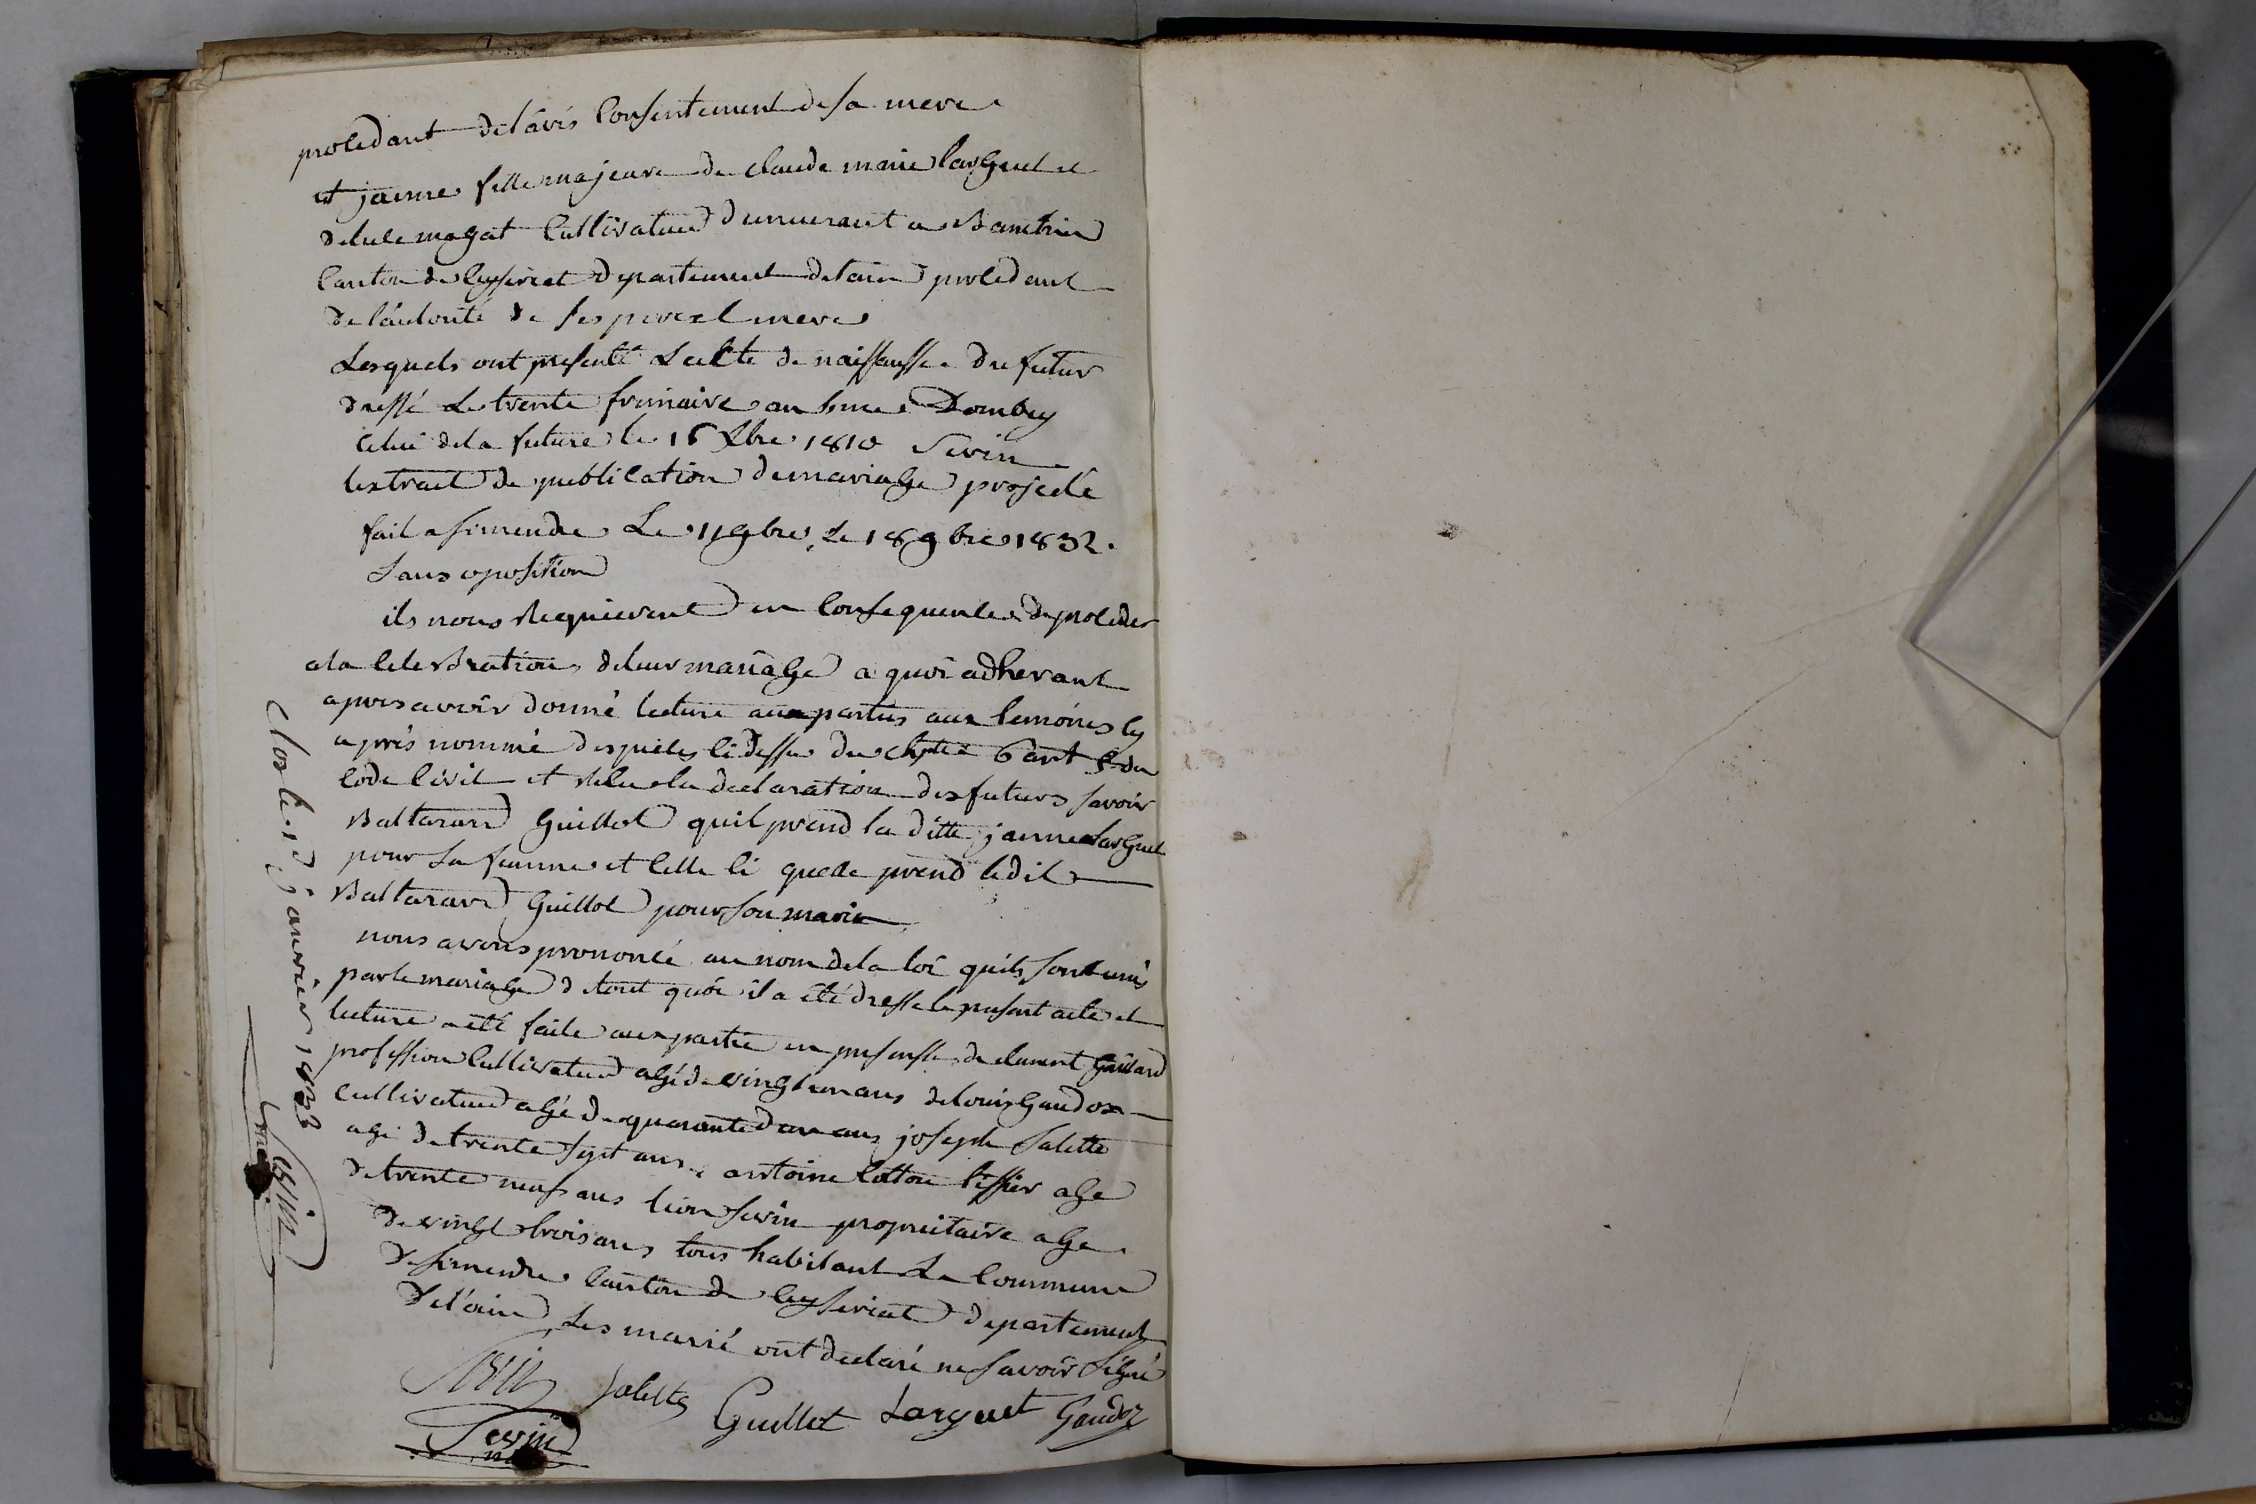 procedant de lávis Consentement de sa mere
et janne fille majeure de Claude marie larguet et
de lucle magat Cultivateur demeurant a
Canton de Ceyseriat departement de lain procedant
de láutorité de ses pere et mere
Lesquels ont presenté Lacte de naissausse du futur
dressé Le trente frimaire an Dombey
Celui de la future le 16 Xbre 1810 Sevin
lextrait de publication de mariage projeté
fait a simendre Le 11 9bre, Le 18 9bre 1832.
Sans oposition
ils nous Requierent en Consequence de proceder
a la Celebration de leur mariage a quoi adherant
apres avoir donné lecture aux parties aux temoins cy
après nommé des pieces ci dessu du chptre 6 art du
Code Civil et Relu la declaration des futurs savoir
Baltazard Guillot quil prend la ditte janne larguet
pour sa femme et Celle ci quelle prend ledit
Baltazard Guillot pour son mari
nous avons prononcé au nom de la loi quils sont unis
par le mariage de tout quoi il a été dresse le present acte et
lecture a été faite aux partie en presensse de clement gaillard
profession Cultivateur agé de vingt un ans de louis Gaudoz
Cultivateur agé de quarante deux ans joseph Salette
agé de trente sept ans antoine Cotton tissier age
de trente neuf ans leon Sevin propriétaire age
de vingt trois ans tous habitant La Commune
de simendre Canton de Ceyseriat departement
de l'ain Les marié ont declaré ne savoir Signé
Sevin Salette Guillot Larguet Gaudoz
Sevin
Clos le 1er janvier 1833
Sevin